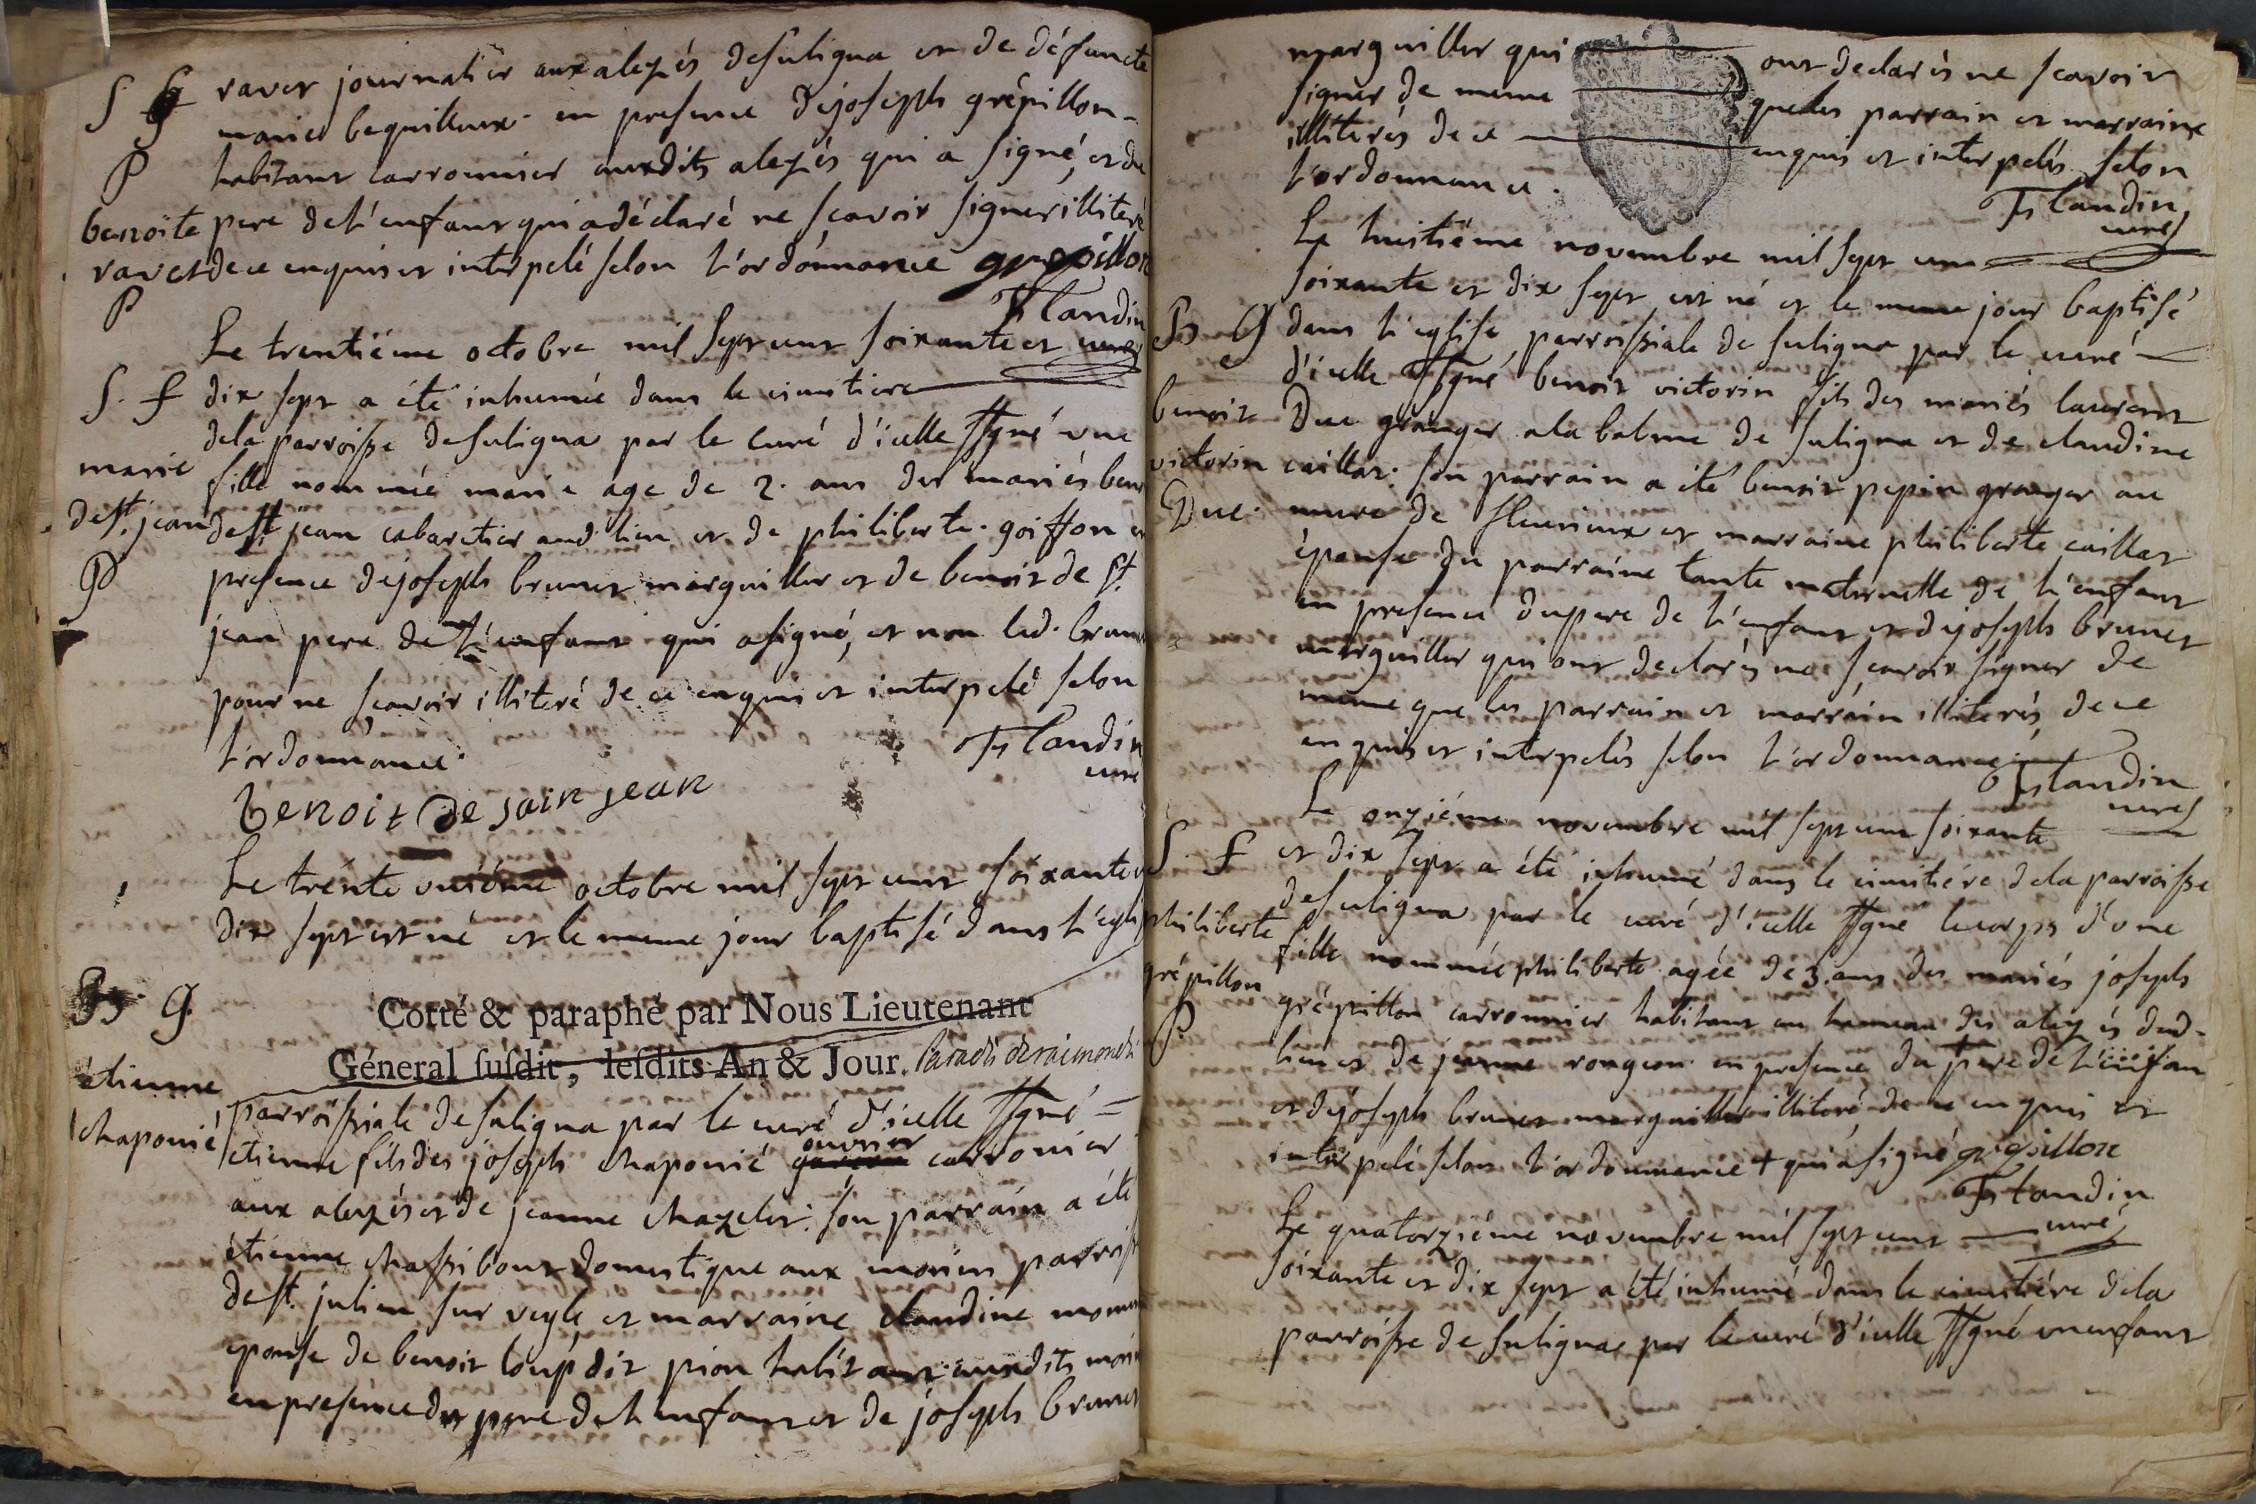 S f
P
benoîte
ravet
P
ravet journalier aux alezés desuligna et de défuncte
marie bequilleux en presence dejoseph grépillon
habitant carronnier auxdits alezés qui a signé, et du
pere de l'enfant qui a déclaré ne scavoir signer illiteré
de ce enquis et interpelé selon l'ordonnance grepillon
Flandin
curé
S. f
marie
de st. jean
P
Le trentiéme octobre mil sept cent soixante et
dix sept a été inhumée dans le cimitiere
dela parroisse desuligna par le curé d'icelle ssgné une
fille nommée marie age de 2. ans des mariés
de st. jean cabaretier aud. lieu et de philiberte goiffon
presence dejoseph brunet marguillier et de benoit de st.
jean pere de l'enfant qui asigné, et non led. brunet
pour ne scavoir illiteré de ce enquis et interpelé selon
l'ordonnance
Flandin
curé
benoit de sain jean
Le trente unième octobre mil sept cent soixante
dix sept est né et le meme jour baptisé dans l'eglise
B. G.
étienne
chaponié
Cotté & paraphé par Nous Lieutenant
Géneral susdit, lesdits An & Jour.
parroissiale desuligna par le curé d'icelle ssgné
etienne fils des joseph chaponié ouvrier carronier
aux alezés et de jeanne chazelet: son parrain a été
étienne chassibout domestique aux
de st. julien sur veyle et marraine claudine
epouse de benoit loup dit pion habitant auxdits
en presence du pere de l'enfant et de joseph brunet
marguillier qui ont declarés ne scavoir
signer de meme que les parrain et marraine
illiterés de ce enquis et interpelés selon
l'ordonnance.
Flandin
curé
B G
benoit
victorin
Duc
Le huitiéme novembre mil sept cent
soixante et dix sept est né et le meme jour baptisé
dans l'eglise parroissiale de suligna par le curé
d'icelle ssgné benoit victorin fils des mariés laurent
Duc granger ala balme de suligna et de claudine
caillat: son parrain a été benoit pepin granger au
de fleurieux et marraine philiberte caillat
épouse du parraine tante maternelle de l'enfant
en presence dupere de l'enfant et dejoseph brunet
marguillier qui ont declarés ne scavoir signer de
meme que les parrain et marrain illiterés, de ce
enquis et interpelés selon l'ordonnance
Flandin
curé
S. f
philiberte
grépillon
P
Le onziéme novembre mil sept cent soixante
et dix sept a été inhumé dans le cimitiére dela parroisse
desuligna par le curé d'icelle ssgné lecorps d'une
fille nommée philiberte agée de 3. ans des mariés joseph
grépillon carronnier habitant au hameau des alezés dud.
lieu et de jeanne rongeon en presence du pere de l'enfan
et dejoseph brunet marguillier illiteré de ce enquis et
interpelé selon l'ordonnance + qui a signé grepillon
Flandin
curé
Le quatorziéme novembre mil sept cent
soixante et dix sept a été inhumé dans le cimitiére dela
parroisse de suligna par le curé d'icelle ssgné un enfant